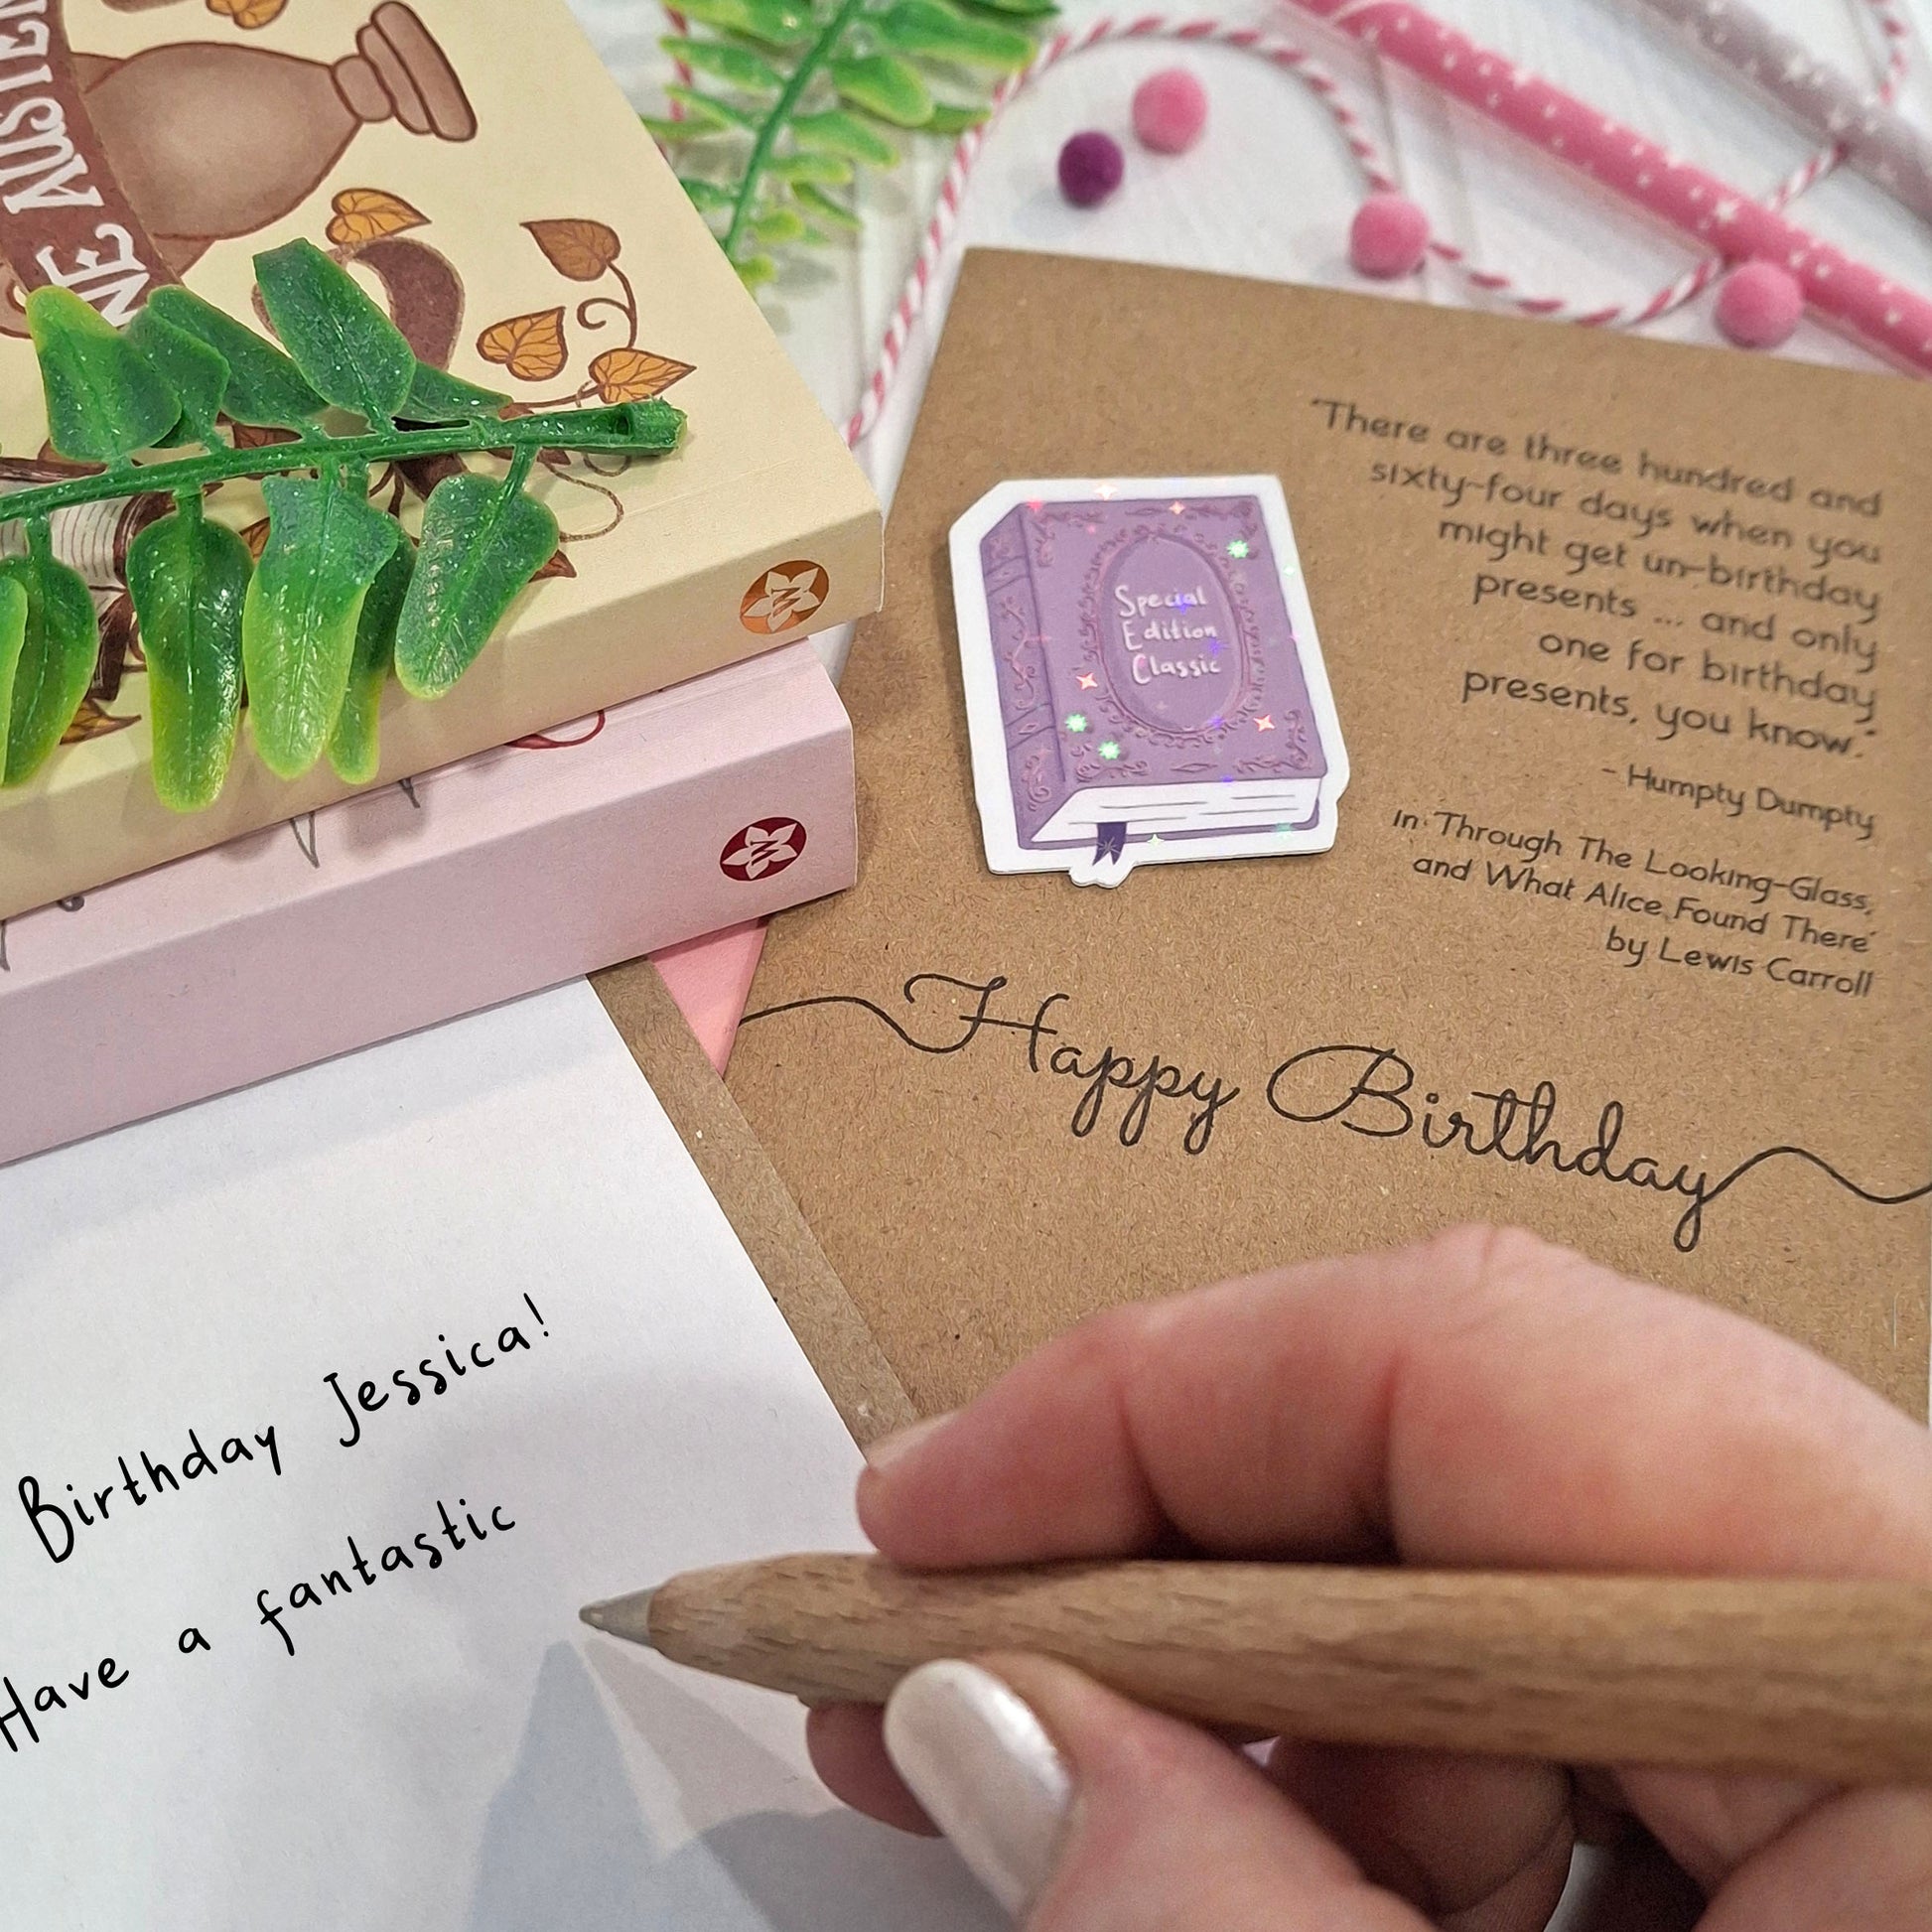 NE AUSTEN
'There are three hundred and
sixty-four days when you
might get un-birthday
presents ... and only
one for birthday
presents, you know.'
- Humpty Dumpty
in 'Through The Looking-Glass,
and What Alice Found There'
by Lewis Carroll
Special
Edition
Classic
Happy Birthday
Birthday Jessica!
Have a fantastic